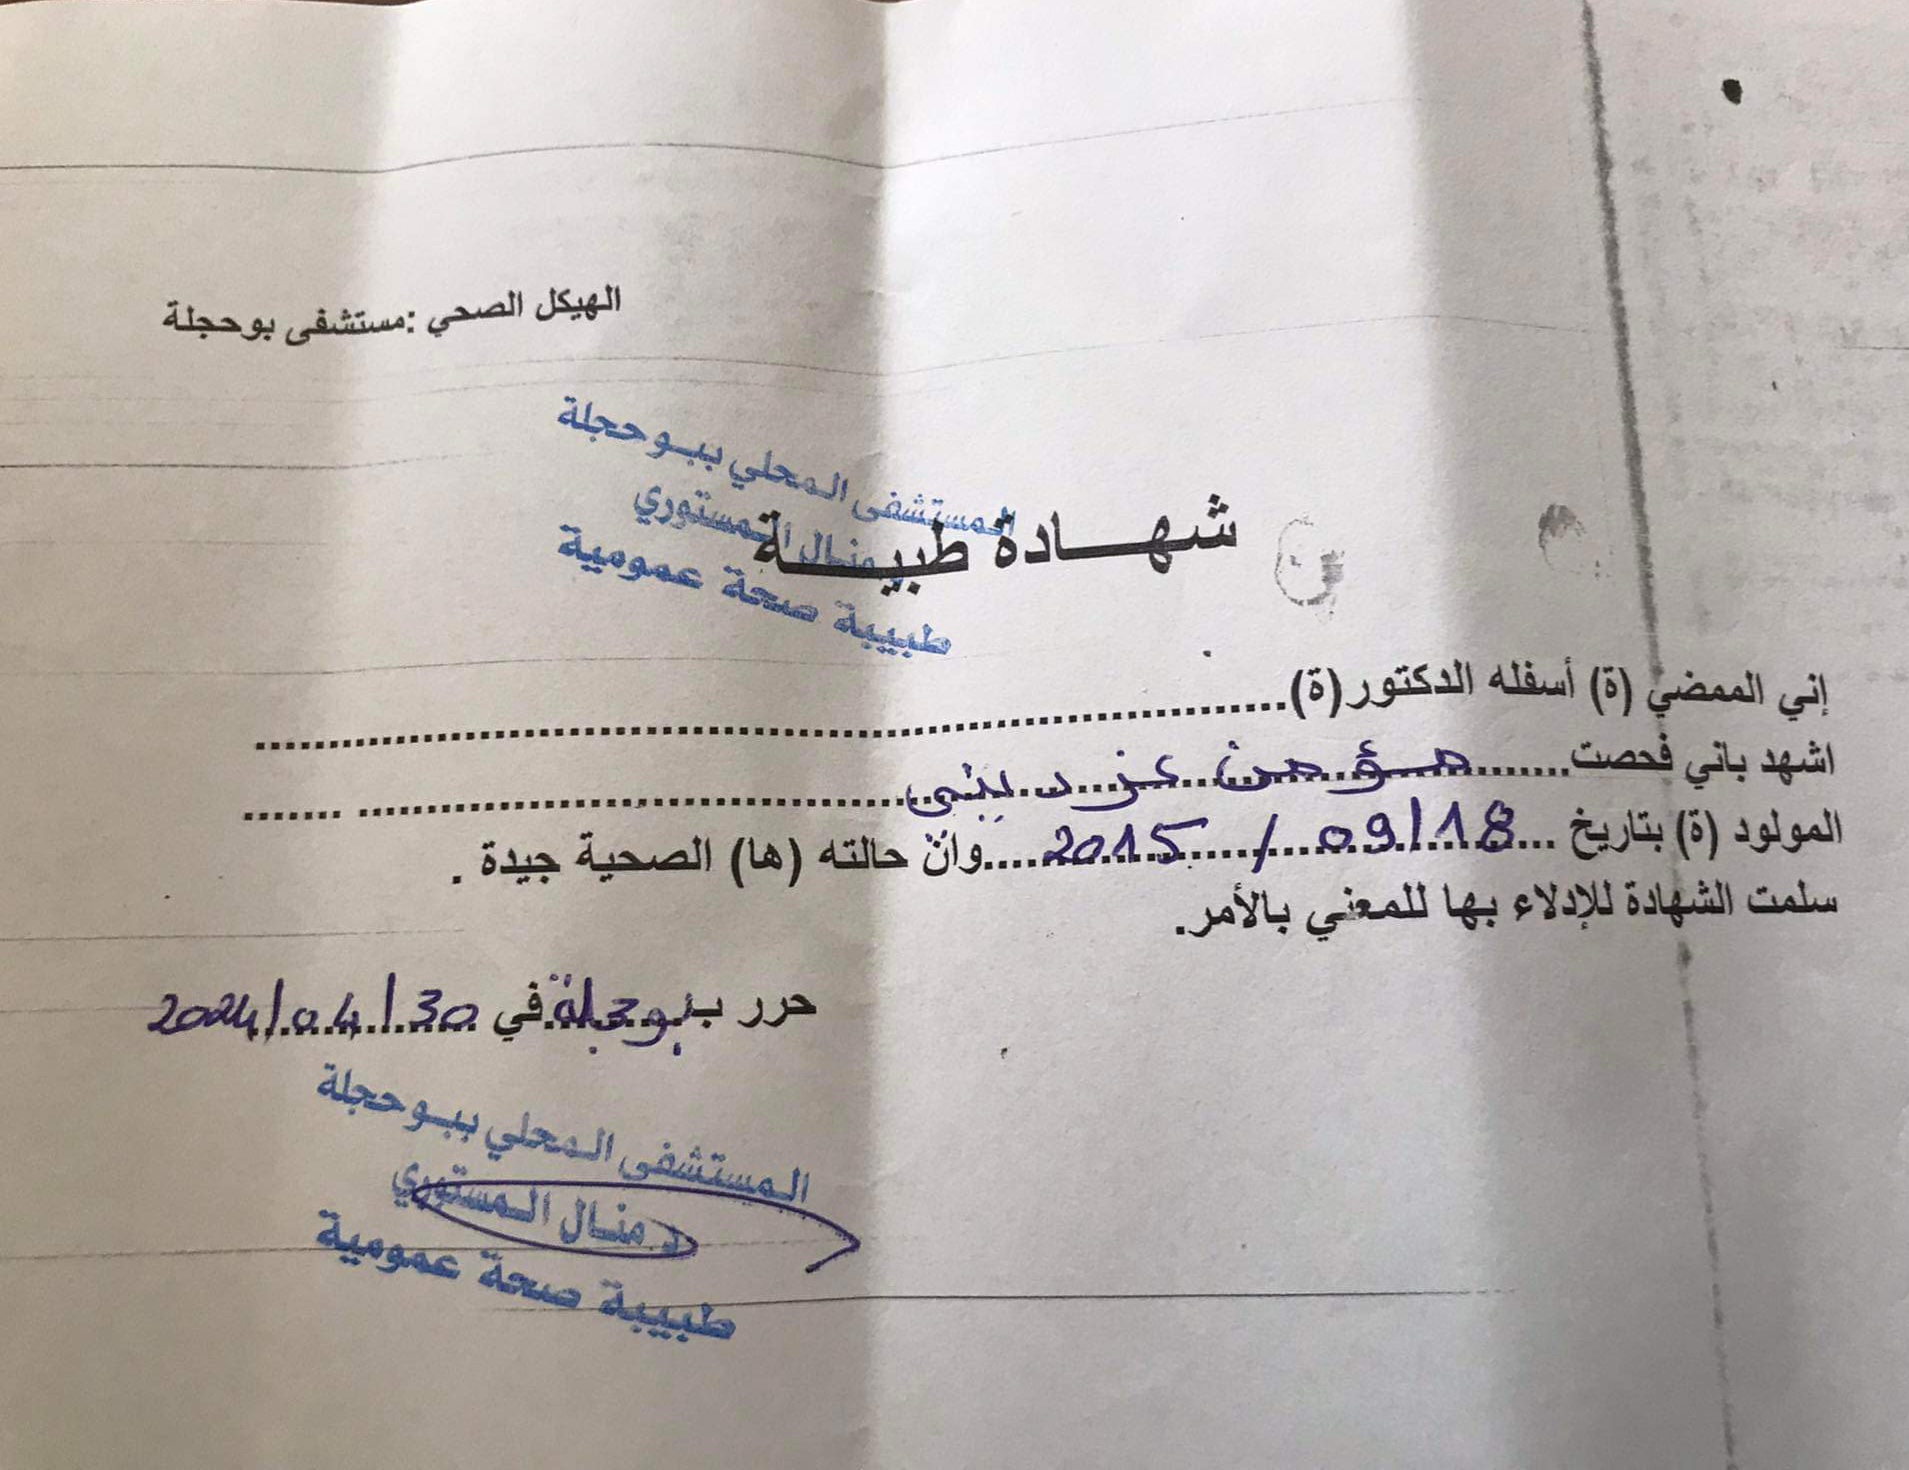 الهيكل الصحي :مستشفى بوحجلة
المستشفى المحلي ببوحجلة
د منال المستوري
طبيبة صحة عمومية
شهادة طبية
إني الممضي (ة) أسفله الدكتور(ة)
اشهد باني فحصت مؤمن عزديني
المولود (ة) بتاريخ 18/09/2015 وانّ حالته (ها) الصحية جيدة .
سلمت الشهادة للإدلاء بها للمعني بالأمر.
حرر ب بوحجلة في 30/04/2024
المستشفى المحلي ببوحجلة
د منال المستوري
طبيبة صحة عمومية